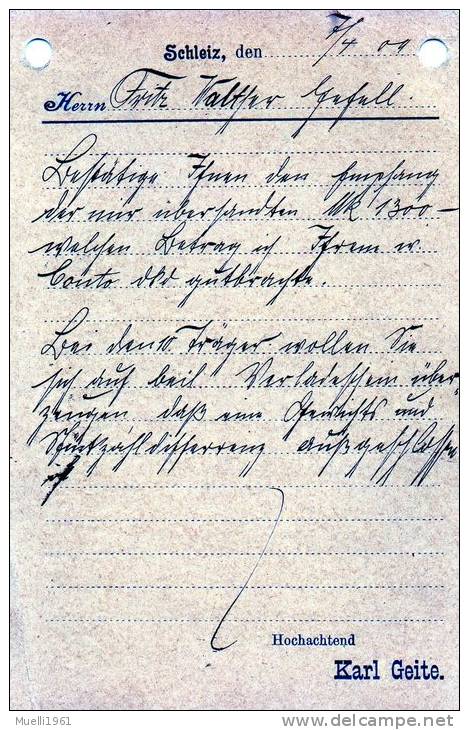 Schleiz, den 7/4 09
Herrn Fritz Walther Gefell.
Bestätige Ihnen den Empfang
der mir übersandten Mk 1300 –
welchen Betrag ich Ihrem w.
Conto dkd gutbrachte.
Bei den 10 Träger wollen Sie
sich auf beil. Verladeschein über-
zeugen daß eine Gewichts und
Stückzahldifferrenz außgeschlossen
ist
Hochachtend
Karl Geite.
Muelli1961
delcampe.net